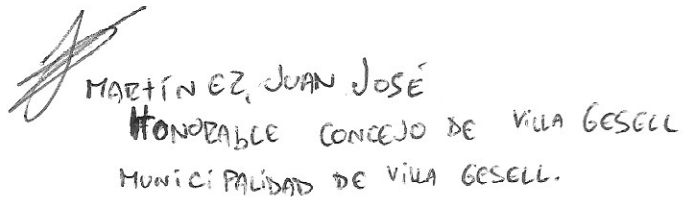 MARTÍNEZ, JUAN JOSÉ
HONORABLE CONCEJO DE VILLA GESELL
MUNICIPALIDAD DE VILLA GESELL.